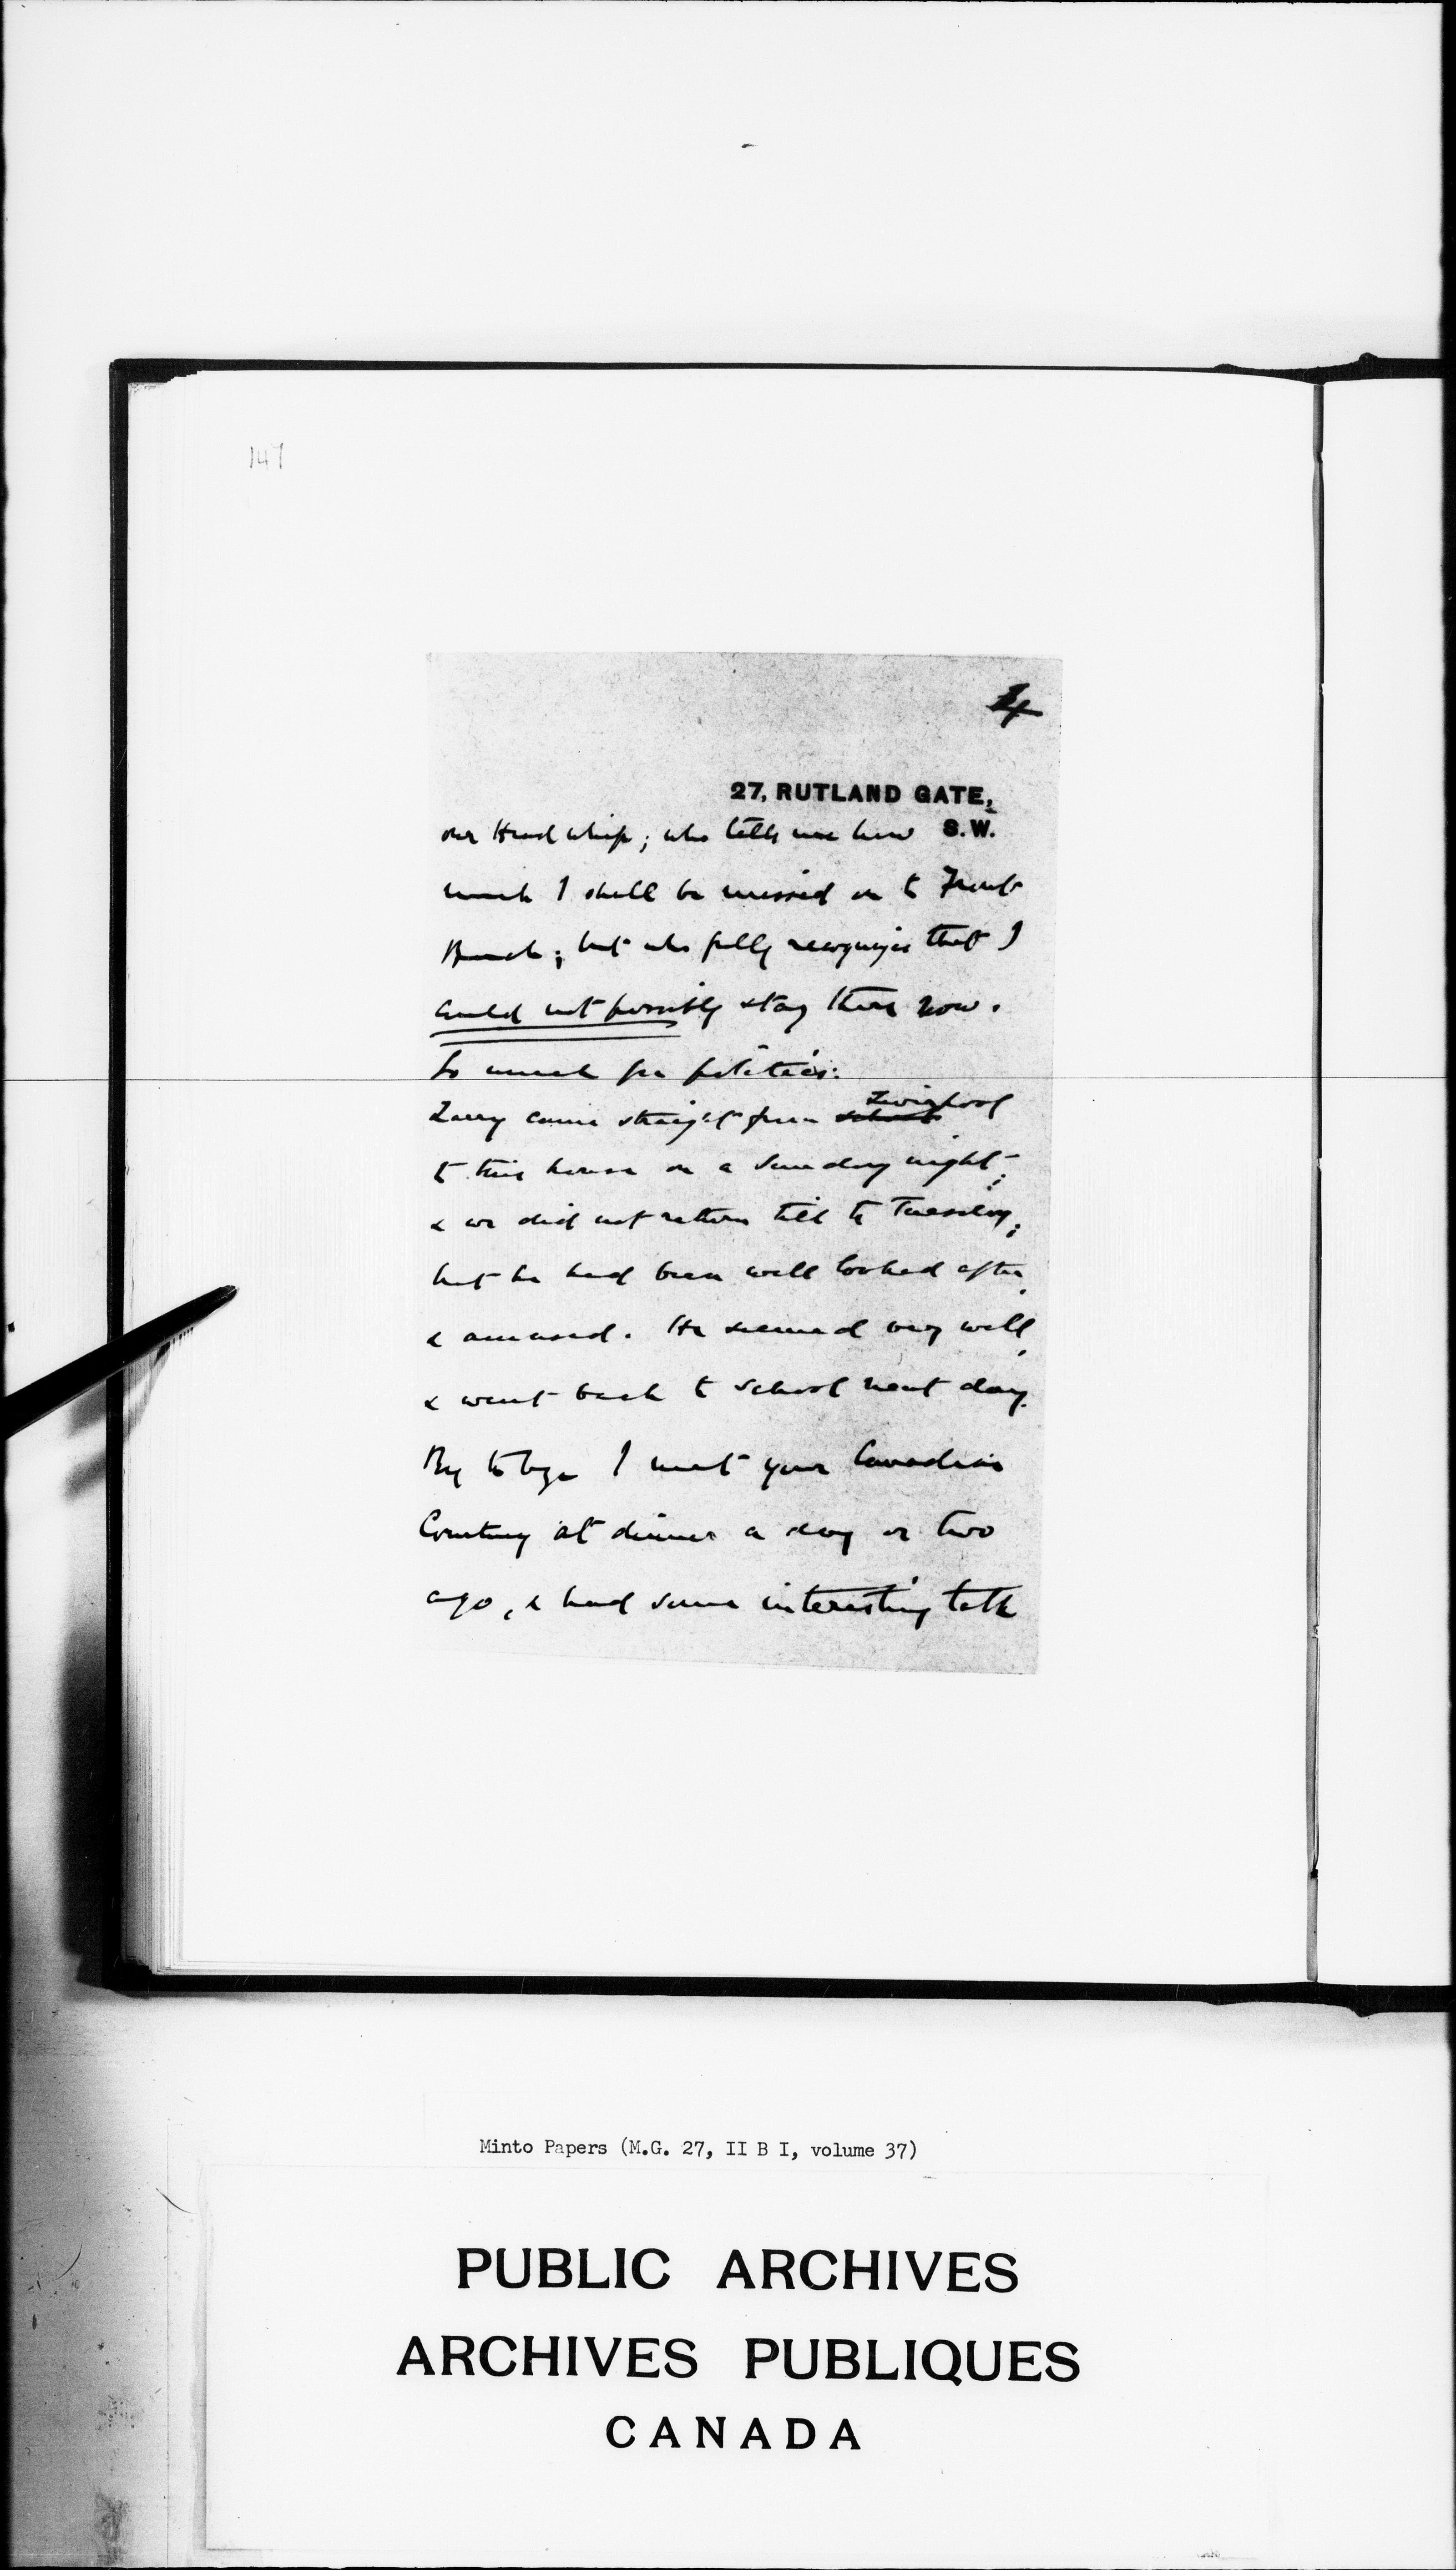 147
4
27, RUTLAND GATE,
S.W.
our Head Whip; who tells me how
much I shall be missed on t Front
Bench; but who fully recognizes that I
could not possibly stay there now.
So much for politics.
Larry came straight from school Liverpool
t this house on a Sunday night;
& we did not return till t Tuesday;
but he had been well looked after,
& amused. He seemed very well,
& went back t school next day.
By t bye I met your Canadian
Courtney at dinner a day or two
ago, & had some interesting talk
Minto Papers (M.G. 27, II B I, volume 37)
PUBLIC ARCHIVES
ARCHIVES PUBLIQUES
CANADA